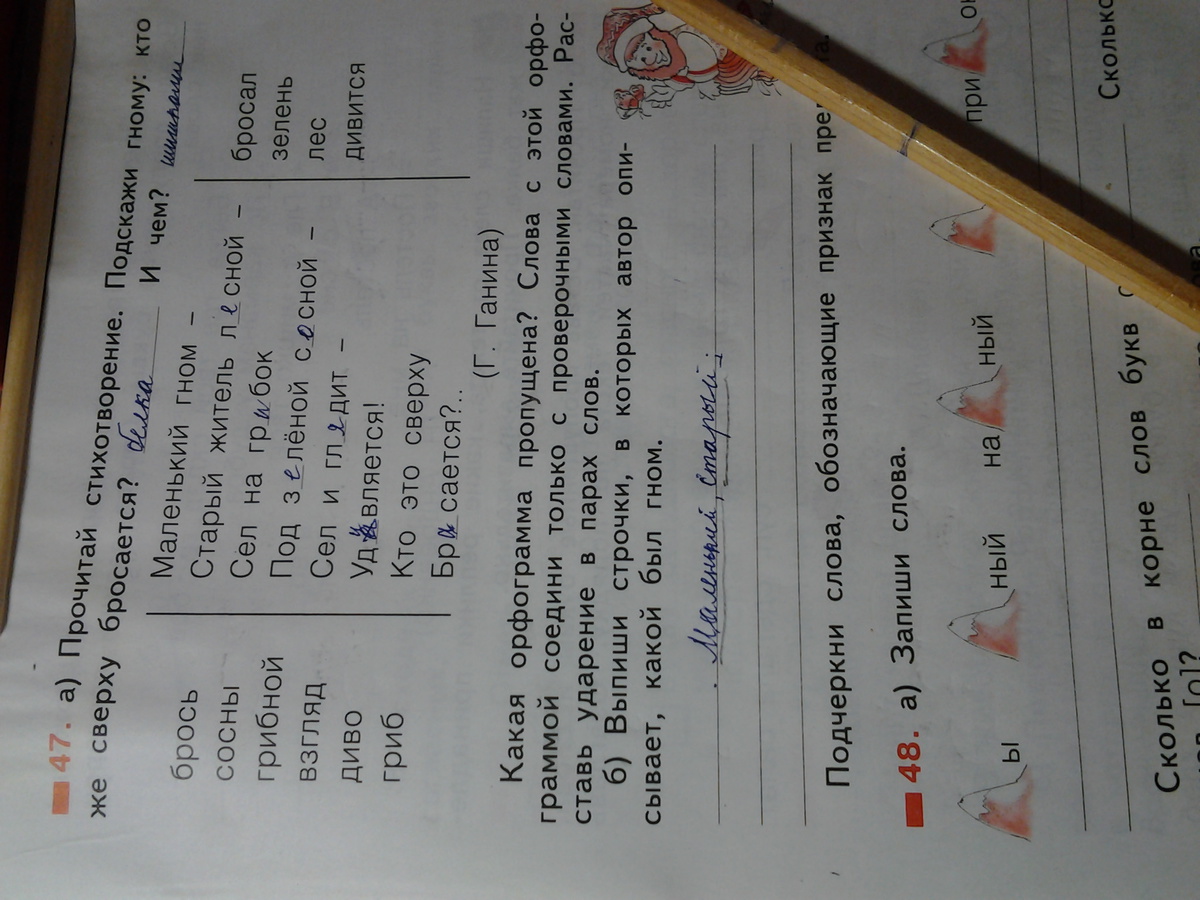 47. а) Прочитай стихотворение. Подскажи гному: кто
же сверху бросается? белка И чем? шишками
брось
сосны
грибной
взгляд
диво
гриб
Маленький гном –
Старый житель лесной –
Сел на грибок
Под зелёной сосной –
Сел и глядит –
Удивляется!
Кто это сверху
Брасается?..
(Г. Ганина)
бросал
зелень
лес
дивится
Какая орфограмма пропущена? Слова с этой орфо-
граммой соедини только с проверочными словами. Рас-
ставь ударение в парах слов.
б) Выпиши строчки, в которых автор опи-
сывает, какой был гном.
Маленький, старый.
Подчеркни слова, обозначающие признак
48. а) Запиши слова.
ы
ный
на ный
при
Сколько в корне слов букв
Сколько
[о]?